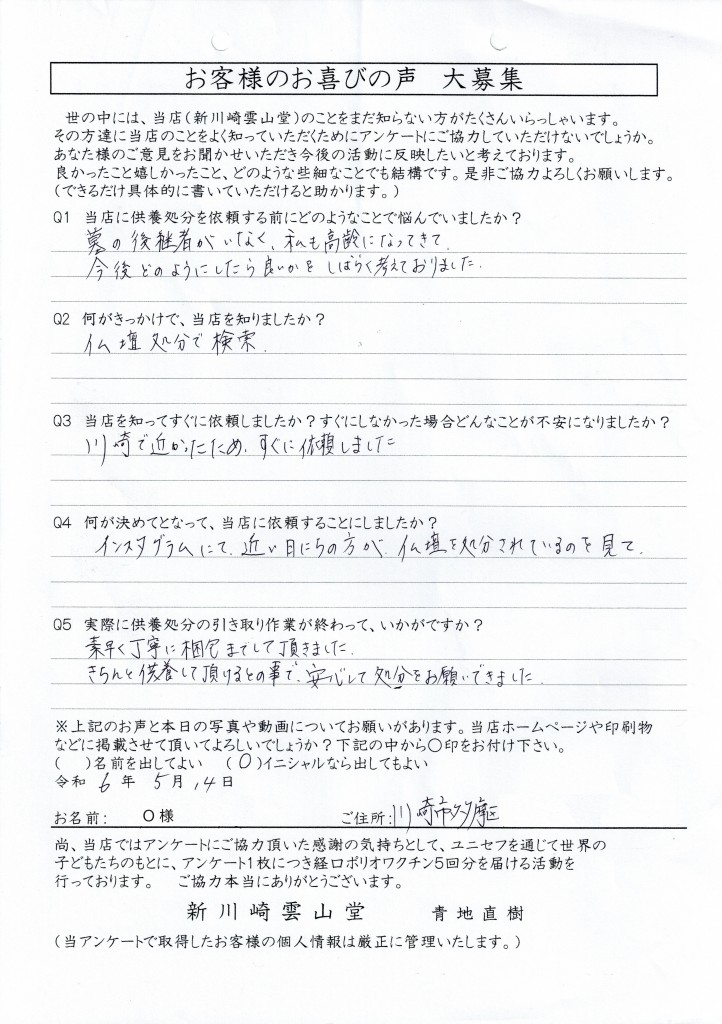 お客様のお喜びの声 大募集
世の中には、当店(新川崎雲山堂)のことをまだ知らない方がたくさんいらっしゃいます。
その方達に当店のことをよく知っていただくためにアンケートにご協力していただけないでしょうか。
あなた様のご意見をお聞かせいただき今後の活動に反映したいと考えております。
良かったこと嬉しかったこと、どのような些細なことでも結構です。是非ご協力よろしくお願いします。
(できるだけ具体的に書いていただけると助かります。)
Q1 当店に供養処分を依頼する前にどのようなことで悩んでいましたか?
墓の後継者がいなく、私も高齢になってきて、
今後どのようにしたら良いかをしばらく考えておりました.
Q2 何がきっかけで、当店を知りましたか?
仏壇処分で検索.
Q3 当店を知ってすぐに依頼しましたか?すぐにしなかった場合どんなことが不安になりましたか?
川崎で近かったため、すぐに依頼しました
Q4 何が決めてとなって、当店に依頼することにしましたか?
インスタグラムにて、近い日にちの方が、仏壇を処分されているのを見て.
Q5 実際に供養処分の引き取り作業が終わって、いかがですか?
素早く丁寧に梱包までして頂きました.
きちんと供養して頂けるとの事で、安心して処分をお願いできました.
※上記のお声と本日の写真や動画についてお願いがあります。当店ホームページや印刷物
などに掲載させて頂いてよろしいでしょうか?下記の中から〇印をお付け下さい。
( )名前を出してよい (O)イニシャルなら出してもよい
令和 6 年 5 月 14 日
お名前: O様 ご住所: 川崎市多摩区
尚、当店ではアンケートにご協力頂いた感謝の気持ちとして、ユニセフを通じて世界の
子どもたちのもとに、アンケート1枚につき経口ポリオワクチン5回分を届ける活動を
行っております。 ご協力本当にありがとうございます。
新川崎雲山堂 青地直樹
(当アンケートで取得したお客様の個人情報は厳正に管理いたします。)